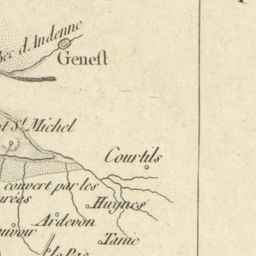 Bec d'Andenne
Genest
St Michel
Courtils
couvert par les
Huynes
Ardevon
Tanic